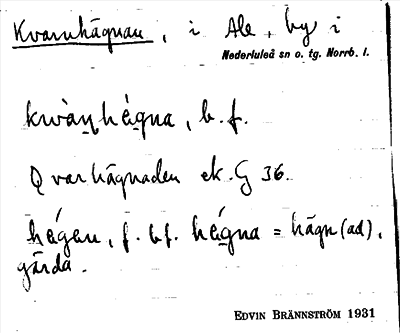 Kvarnhägnan, i Ale, by i
Nederluleå sn o. tg. Norrb. l.
kwàṇhég̣na, b. f.
Qvarhägnaden ek. G 36.
hégen, f. bf. hég̣na = hägn(ad),
gärda.
EDVIN BRÄNNSTRÖM 1931